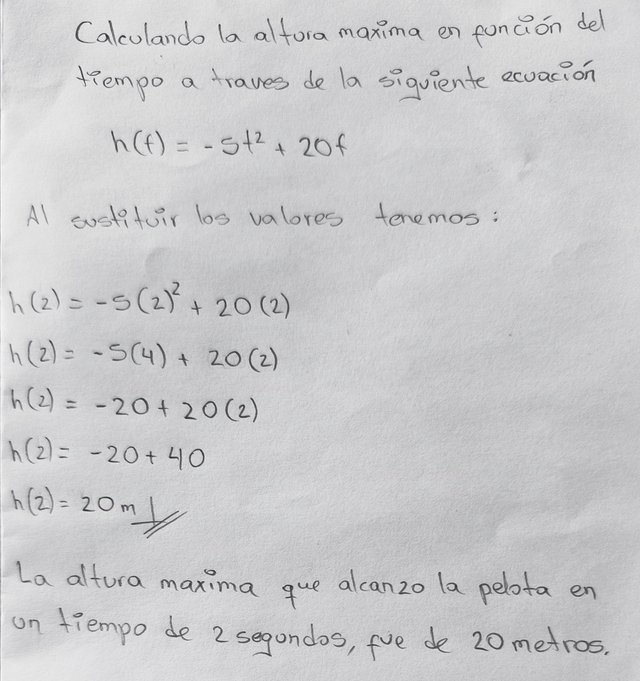 Calculando la altura maxima en función del
tiempo a traves de la siguiente ecuación
h(t) = -5t² + 20t
Al sustituir los valores tenemos:
h(2) = -5(2)² + 20(2)
h(2) = -5(4) + 20(2)
h(2) = -20 + 20(2)
h(2) = -20 + 40
h(2) = 20m
La altura maxima que alcanzo la pelota en
un tiempo de 2 segundos, fue de 20 metros.